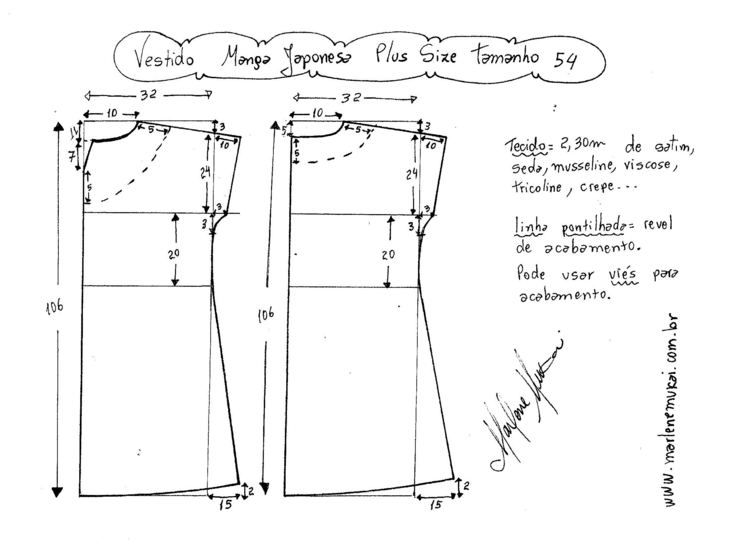 Vestido Manga Japonesa Plus Size Tamanho 54
32
10
3
11
5
10
7
24
5
3
3
20
106
2
15
32
10
3
5
5
10
5
24
3
3
20
106
2
15
Tecido = 2,30m de satim,
seda, musseline, viscose,
tricoline, crepe...
linha pontilhada = revel
de acabamento.
Pode usar viés para
acabamento.
Marlene Mukai
www.marlenemukai.com.br